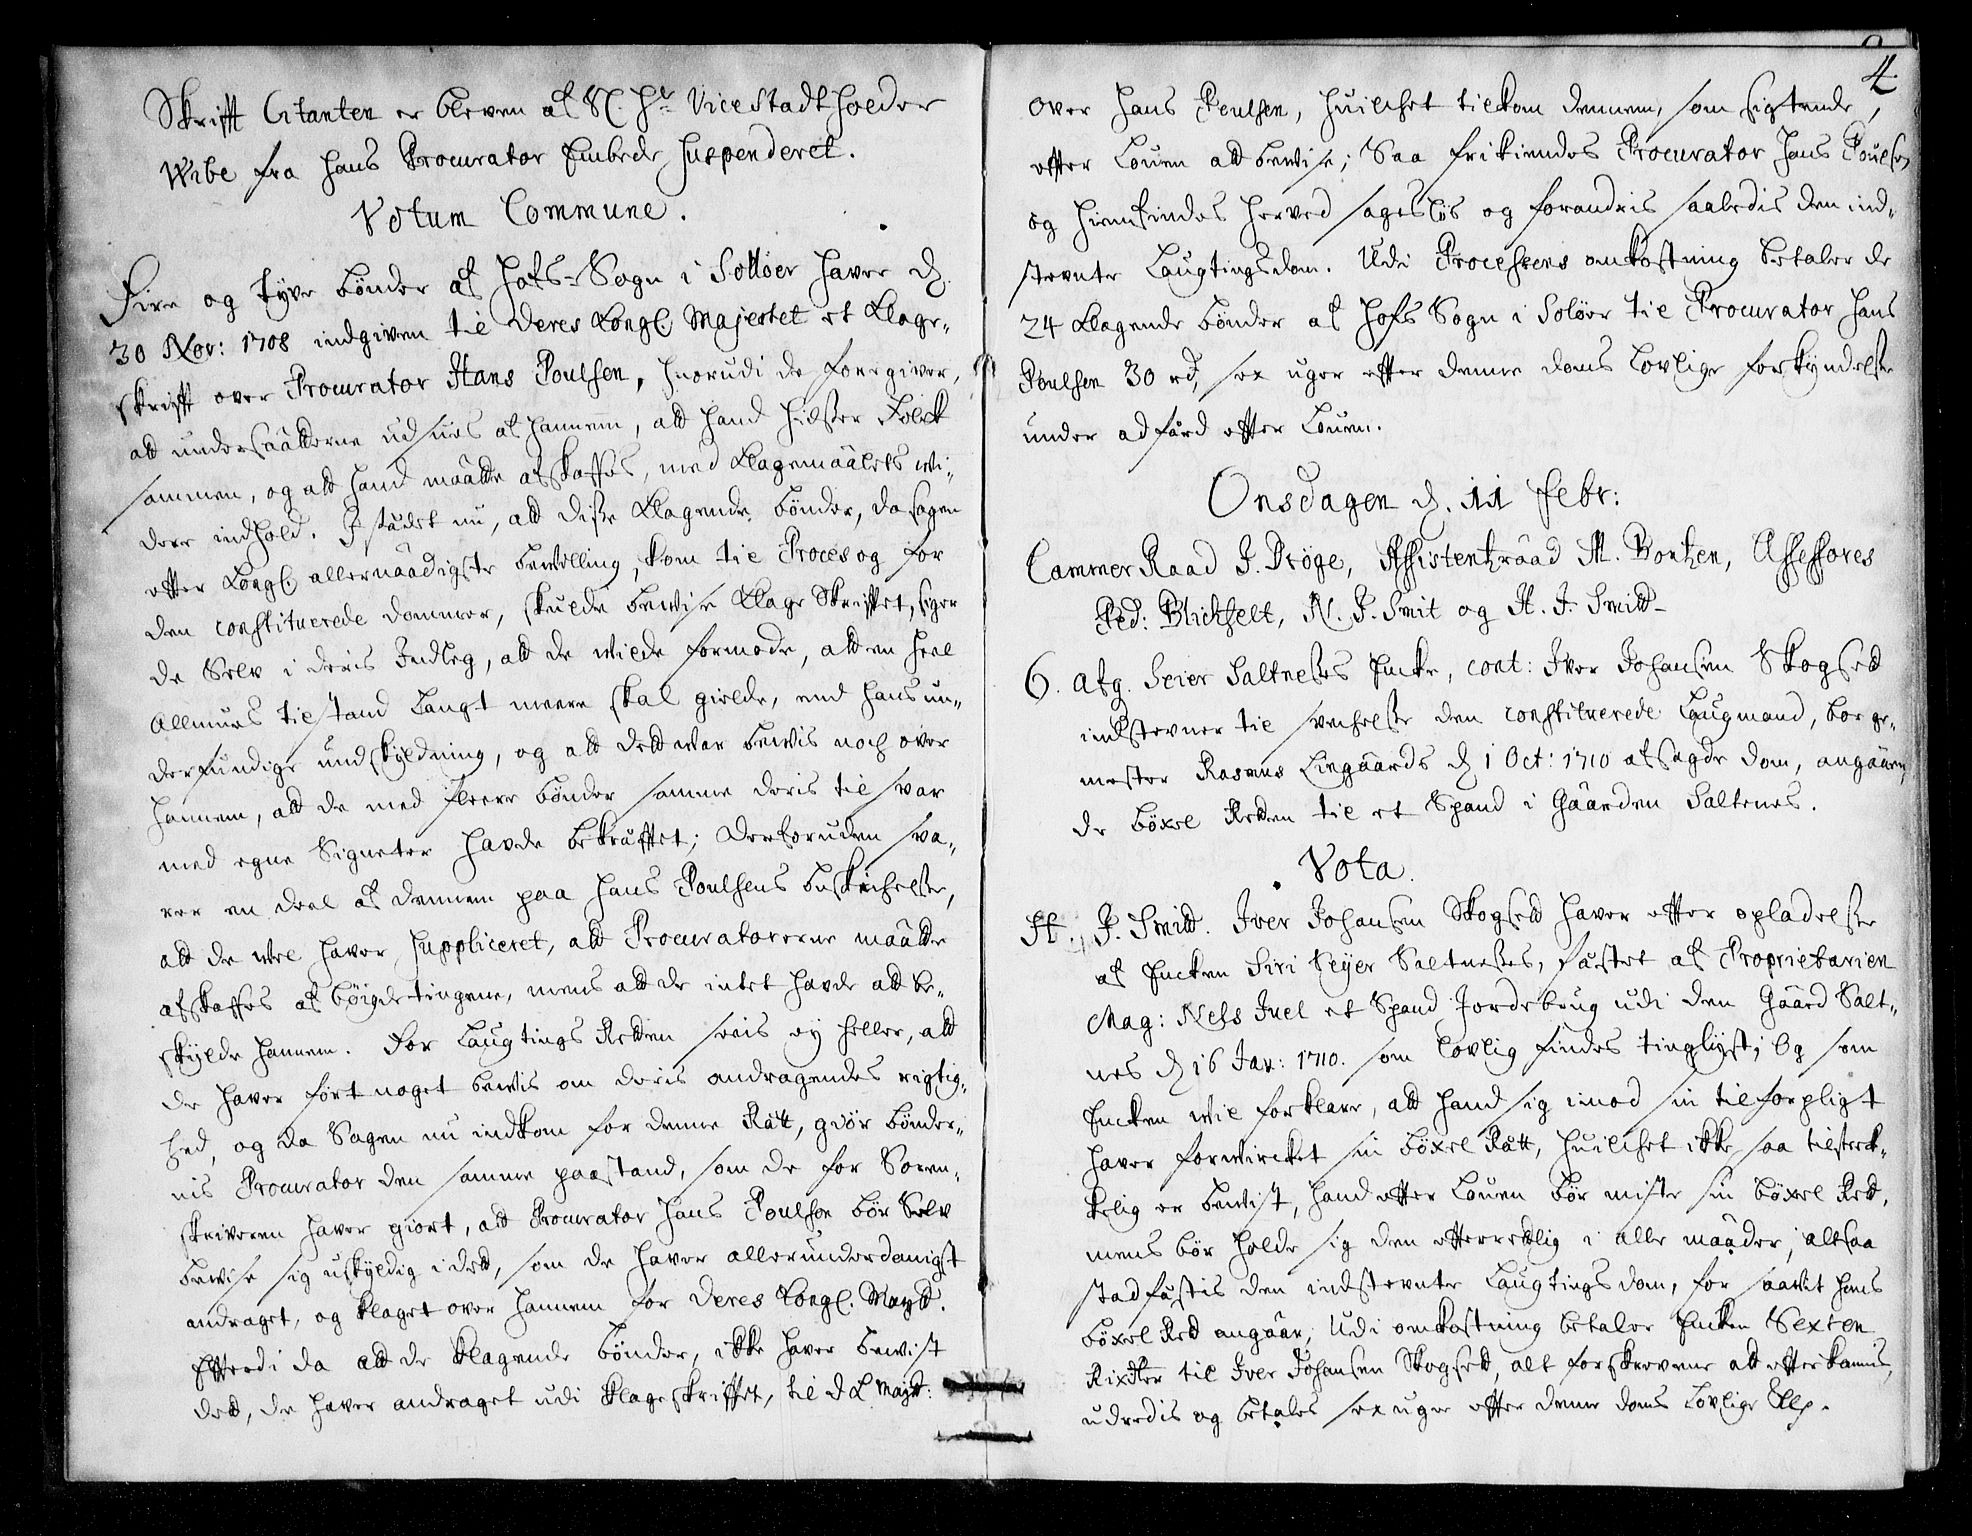 Skrifft Citanten er bleven af Sl. Hr Vice Stadtholder
Wibe fra hans Procurator Embede suspenderet.
Votum Commune.
Fire og tyve bønder af Hofs-Sogn i Soløer haver d.
30 Nov: 1708 indgiven til Deres Kongl. Majestet et Klage-
skrifft over Procurator Hans Poulsen, hvorudi de foregiver,
att undersaatterne udsues af hannem, att hand hidser Folck
sammen, og att hand maatte afskaffes, med Klagemaalets wi-
dere indhold. I stædet nu, att disse Klagende bønder, da sagen
efter Kongl. allernaadigste bewilling, kom til Proces og for
den constituerede dommer, skulde bewise Klage Skrifftet, siger
de Selv i deris Indleg, att de wilde formode, att en heel
Allmues tilstand langt meere skal gielde, end hans un-
derfundige undskyldning, og att dett war bewis noch over
hannem, att de med fleere bønder samme deris til svar
med egne Signeter havde bekræfftet; derforuden sva-
rer en deel af dennem paa Hans Poulsens beskickelse,
att de wel haver suppliceret, att Procuratorerne maatte
afskaffes af bøigdetingene, mens att de intet havde att be-
skylde hannem. For Laugtings Retten sees ey heller, att
de haver ført noget bewis om deris andragendes rigtig-
hed, og da Sagen nu indkom for denne Rætt, giør bønder-
nis Procurator den samme paastand, som de for Soren-
skriveren haver giort, att Procurator Hans Poulsen bør Selv
bewise sig uskyldig i dett, som de haver allerunderdanigst
andraget, og klaget over hannem for Deres Kongl. Maytt.
Efterdi da att de klagende bønder, ikke haver bewist
dett, de haver andraget udi klageskrifftet, til d K Maytt:
4
over Hans Poulsen, huilchet tilkom dennem, som sigtende,
efter Louen att bewise; Saa frikiendes Procurator Hans Poulsen
og hiemfindes herved sagesløs og forandris saaledis den ind-
stevnte Laugtingsdom. Udi Processens omkostning betaler de
24 Klagende bønder af Hofs Sogn i Soløer til Procurator Hans
Poulsen 30 rd, sex uger efter denne doms lovlige forkyndelse
under adfærd efter Louen.
Onsdagen d. 11 Febr:
Cammer Raad J. Dröge, Assistentzraad M. Bentzen, Assessores
Ped: Blichfelt, N. P. Smit og H. J. Smitt
6. Afg. Seier Saltneses Encke, cont: Iver Johansen Skogsett
indstevner til swechelse den constituerede Laugmand, borge-
mester Rasmus Lingaards d 1 Oct: 1710 afsagde dom, angaaen-
de böxel Retten til et Spand i Gaarden Saltenes.
Vota.
H. J. Smitt. Iver Johansen Skogsett haver efter opladelse
af Encken Siri Seyer Saltneses, fæstet af Proprietarien
Mag: Nels Juel et Spand Jordebrug udi den Gaard Salt-
nes d 16 Jan: 1710. som lovlig findes tinglyst; Og som
Encken wil forklare, att hand sig imod sin tilforpligt
haver forwircket sin böxel Rætt, huilchet ikke saa tilstreck-
kelig er bewist, hand efter Louen bør miste sin böxel Rett,
mens bør holde sig den efterrettlig i alle maader; altsaa
stadfæstis den indstevnte Laugtings dom, for saavit hans
böxel Rett angaar, Udi omkostning betaler Enken Sexten
Rixdlr til Iver Johansen Skogsett, alt forskrevne att efterkommis,
udredis og betales sex uger efter denne doms Lovlige